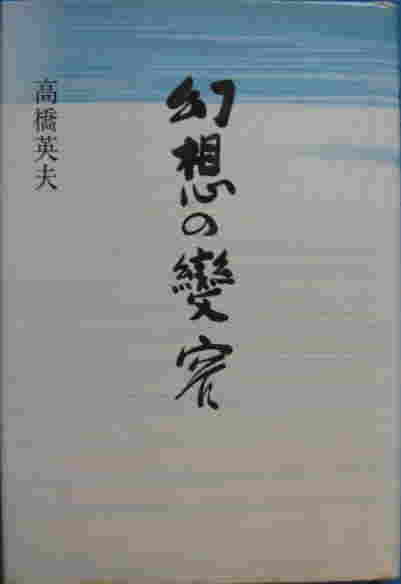 幻想の變容
高橋英夫